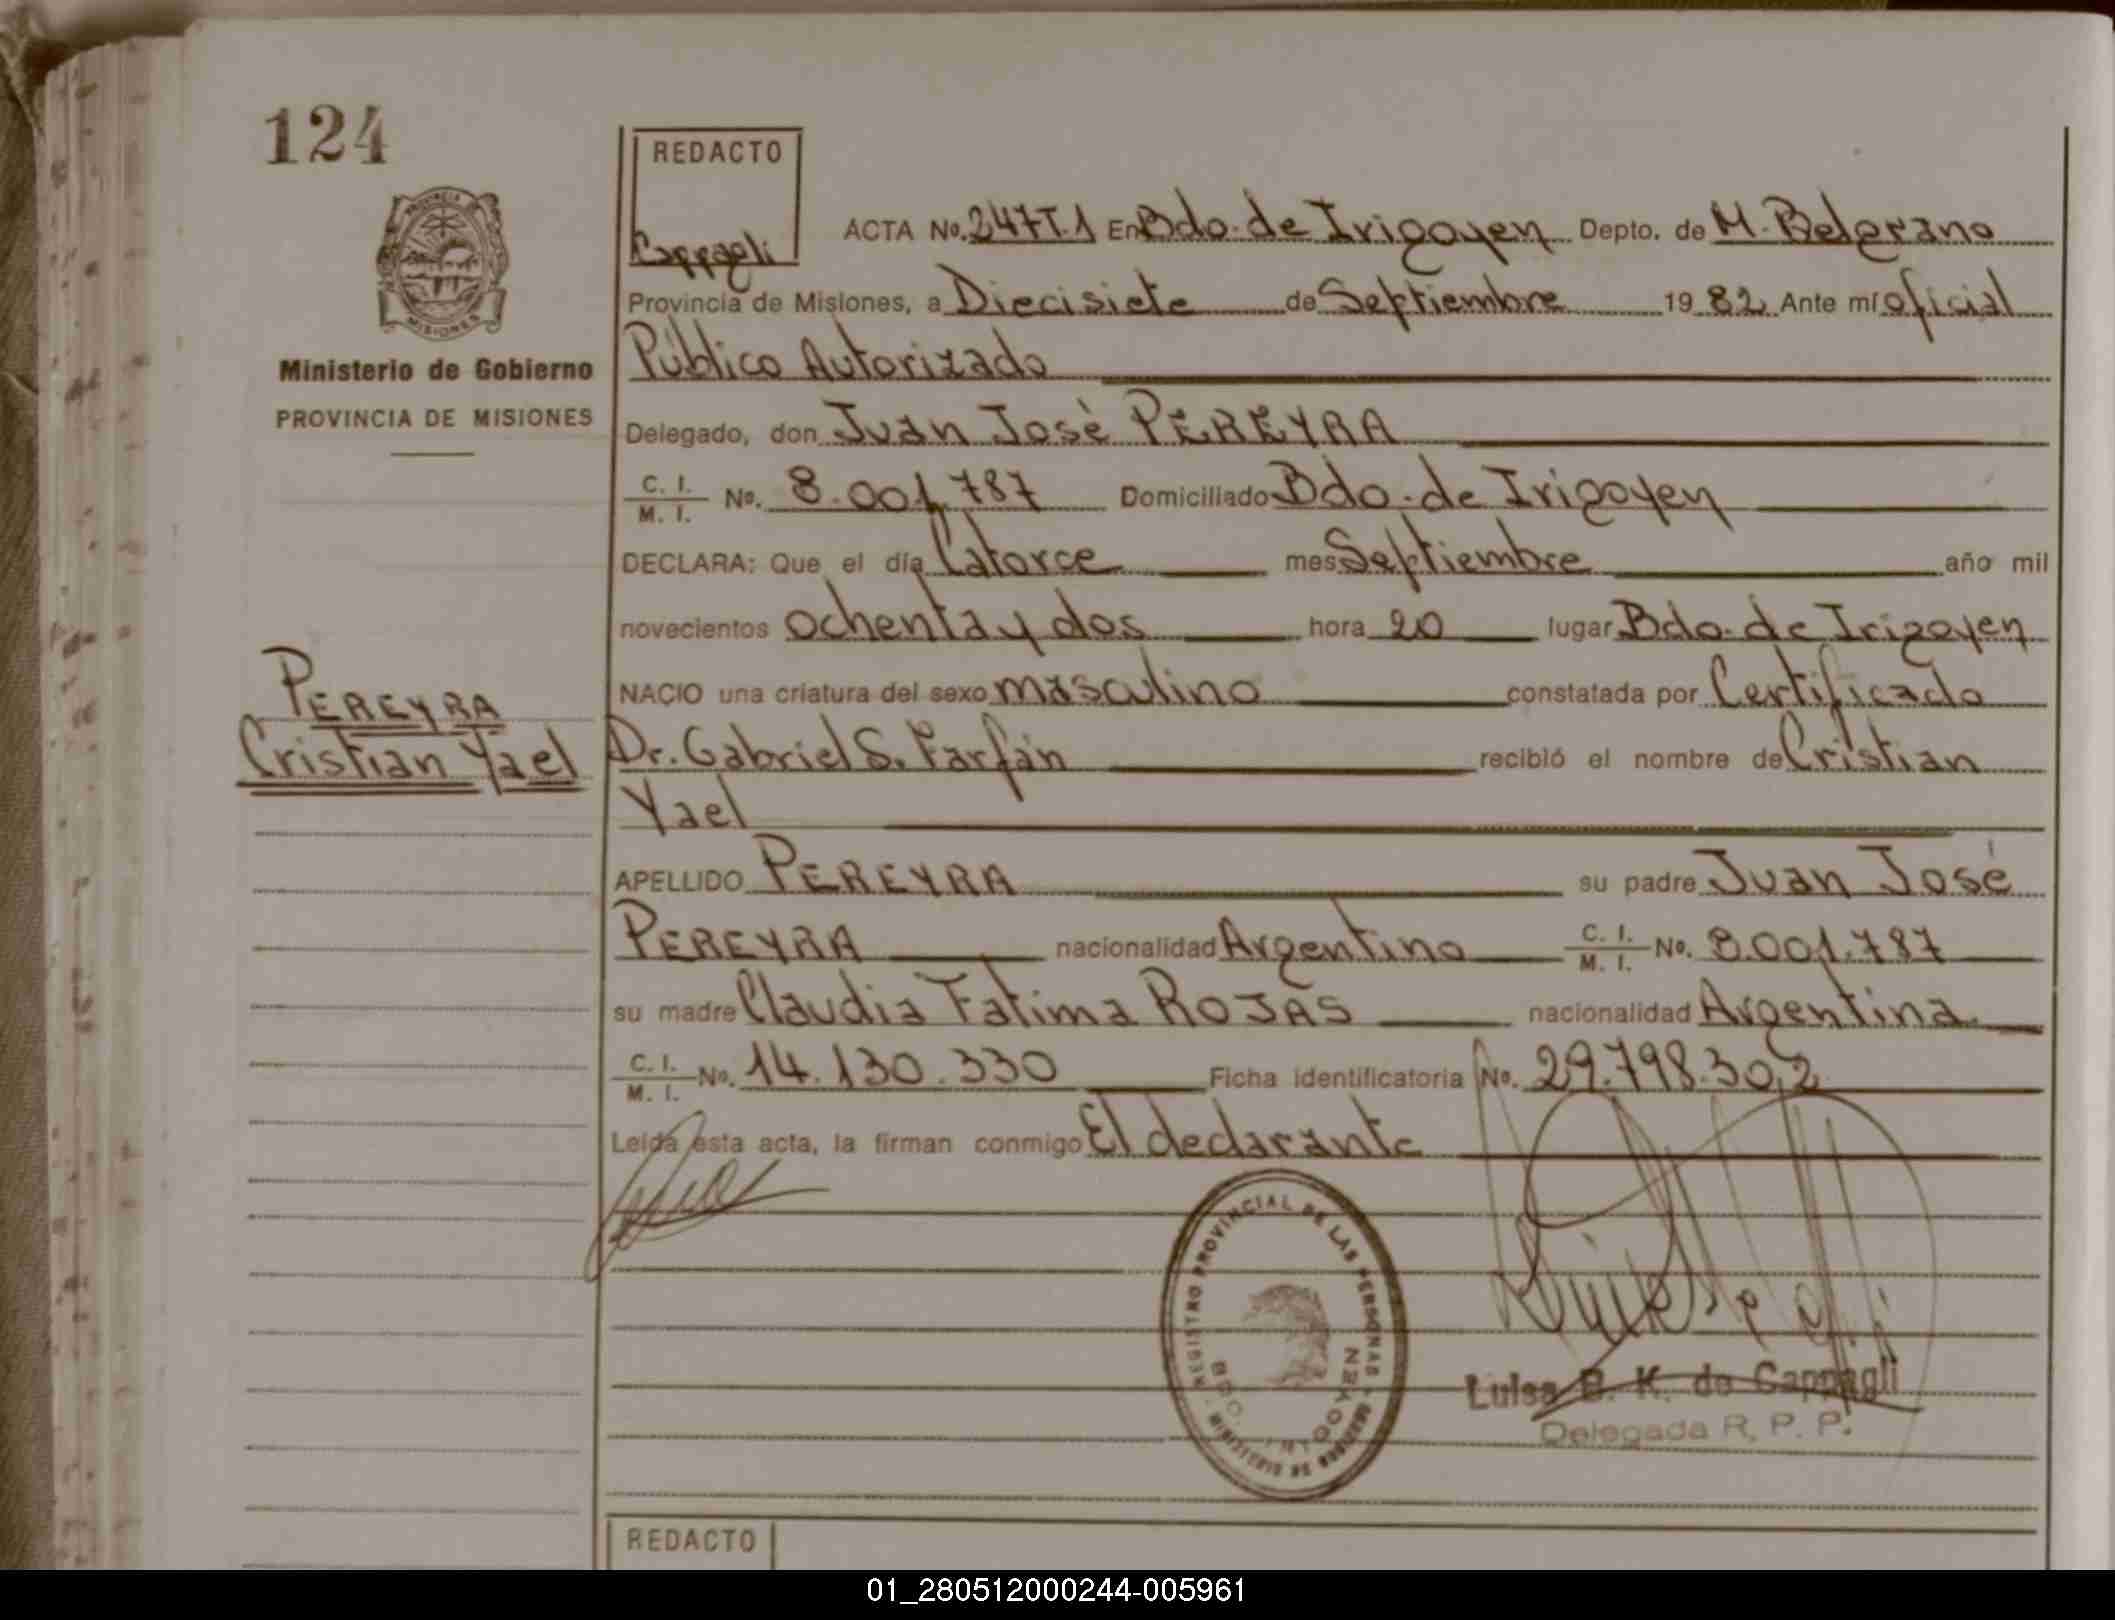 124
REDACTO
Cappagli
ACTA No. 247T1 En Bdo. de Irigoyen Depto. de M. Belgrano
Provincia de Misiones, a Diecisiete de Septiembre 1982 Ante mí oficial
Público Autorizado
Ministerio de Gobierno
PROVINCIA DE MISIONES
Delegado, don Juan José PEREYRA
C. I. / M. I. No. 8.001.787 Domiciliado Bdo. de Irigoyen
DECLARA: Que el día Catorce mes Septiembre año mil
novecientos ochenta y dos hora 20 lugar Bdo. de Irigoyen
PEREYRA
Cristian Yael
NACIO una criatura del sexo masculino constatada por Certificado
Dr. Gabriel S. Farfán recibió el nombre de Cristian
Yael
APELLIDO PEREYRA su padre Juan José
PEREYRA nacionalidad Argentino C. I. / M. I. No. 8.001.787
su madre Claudia Fatima ROJAS nacionalidad Argentina
C. I. / M. I. No. 14.130.330 Ficha identificatoria No. 29.798.302
Leída esta acta, la firman conmigo El declarante
REGISTRO PROVINCIAL DE LAS PERSONAS
BDO. IRIGOYEN
Luisa B. K. de Cappagli
Delegada R. P. P.
REDACTO
01_280512000244-005961